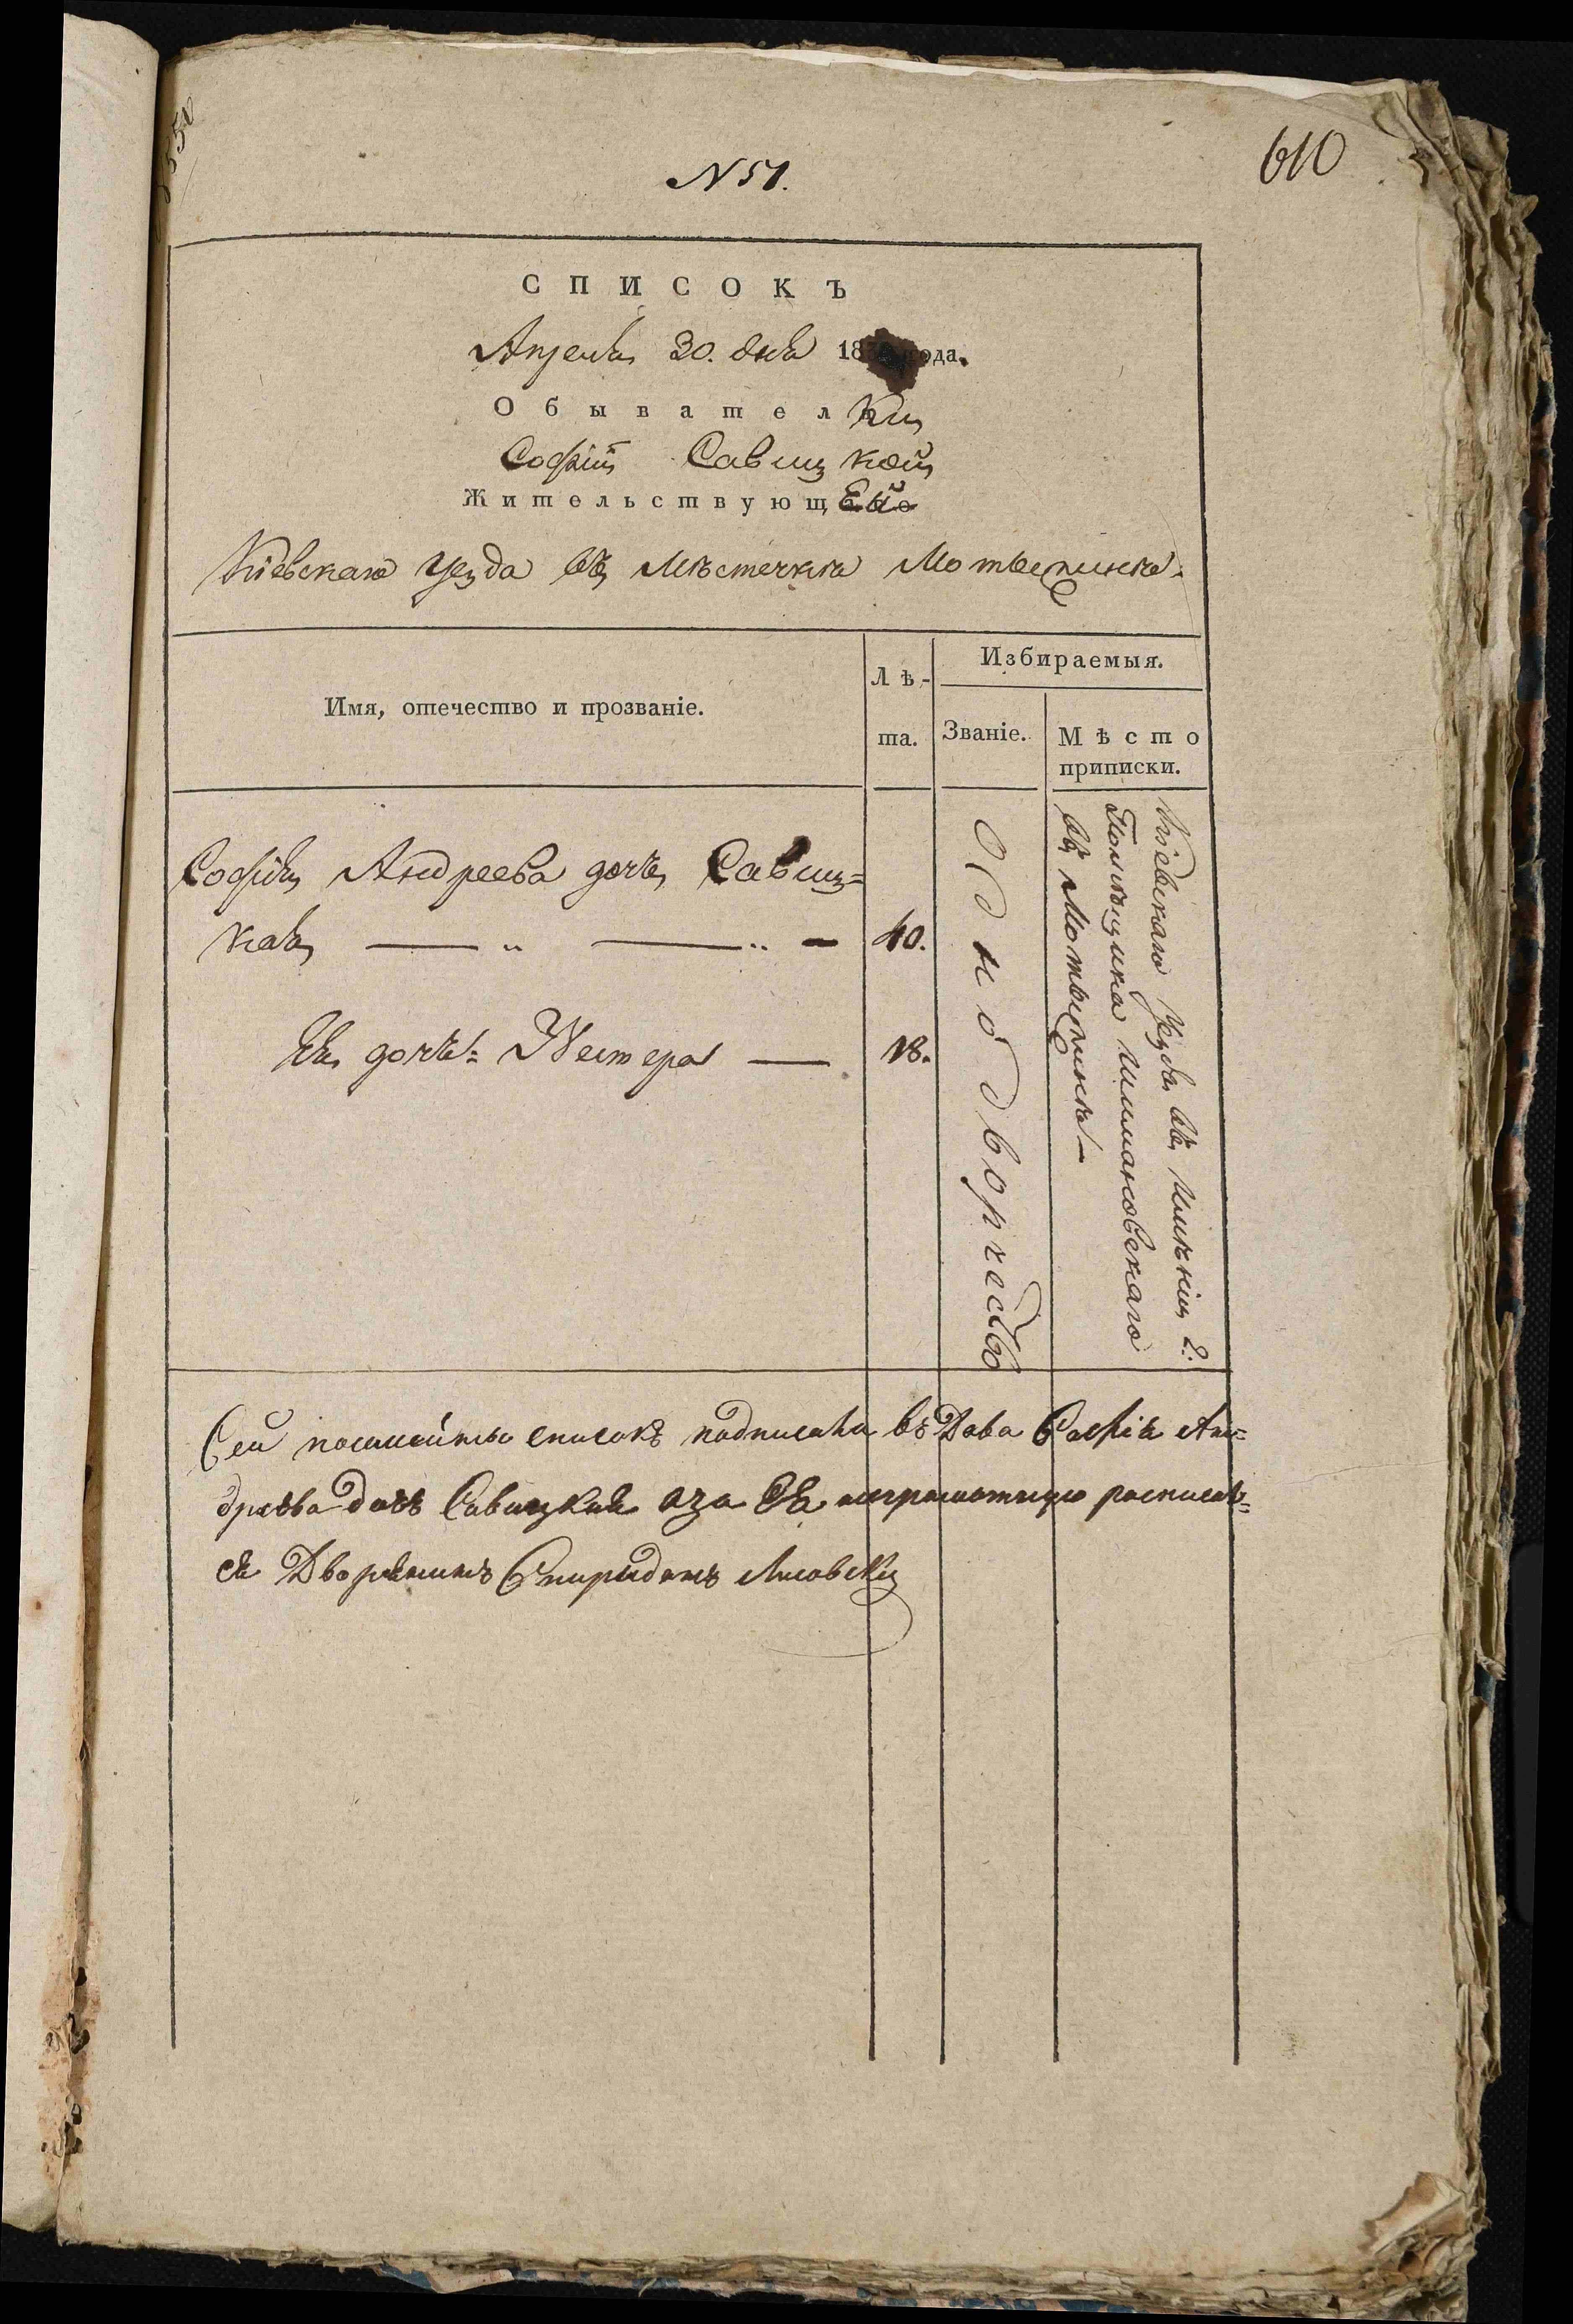 610
N 51.
СПИСОКЪ
Апреля 30. дня 18 года.
Обывателки
Софіи Савицкой
Жительствующей
Кіевскаго уезда въ Мѣстечкѣ Мотыжинѣ.
Имя, отечество и прозваніе.
Лѣ-
та.
Избираемыя.
Званіе.
Мѣсто
приписки.
Софія Андреева дочь Савиц=
кая
40.
Ея дочь: Нестера
18.
Однодворчество
Кіевскаго уезда въ имѣніи г:
Помѣщика Шимановскаго
въ Мотыжинѣ
Сей посемейны списокъ подписала вдова Софія Ан=
дреева дочь Савицкая аза Ея неграмотную росписал=
ся Дворянинъ Спиридонъ Лисовскій